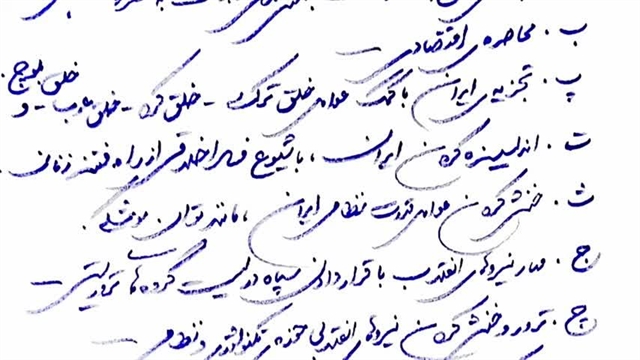 ب. محاصره‌ی اقتصادی
پ. تجزیه‌ی ایران با کمک عوامل خلق ترک - خلق کرد - خلق عرب - و خلق بلوچ.
ت. اندلسیزه کردن ایران، با شیوع فساد اخلاقی از راه فتنه زنان.
ث. خنثی کردن عوامل قدرت نظامی ایران، مانند توان موشکی.
ج. مهار نیروهای انقلاب با قرار دادن سپاه در لیست گروه‌های تروریستی
چ. ترور و خنثی کردن نیروهای انقلابی حوزه‌ی تکنولوژی و نظامی